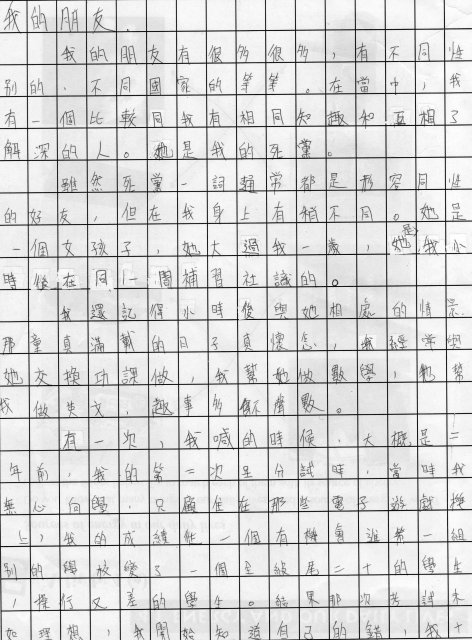 我的朋友
我的朋友有很多很多，有不同性
別的，不同國家的等等。在當中，我
有一個比較同我有相同知趣和互相了
解深的人。她是我的死黨。
雖然死黨一詞通常都是形容同性
的好友，但在我身上有稍不同。她是
一個女孩子，她大過我一歲，她是我小
時後在同一間補習社識的。
我還記得小時後與她相處的情景，
那童真滿載的日子真懷念，我經常與
她交換功課做，我幫她做數學，她幫
我做英文，趣事多
有一次，我喊的時候，大概是二
年前，我的第二次呈分試時，當時我
無心向學，只顧住在那些電子遊戲機
上，我的成績能一個有機會進第一組
別的學校變了一個全級尾二十的學生
，操行又差的學生。結果那次考試未
如理想，我開始知道自己的錯，我十